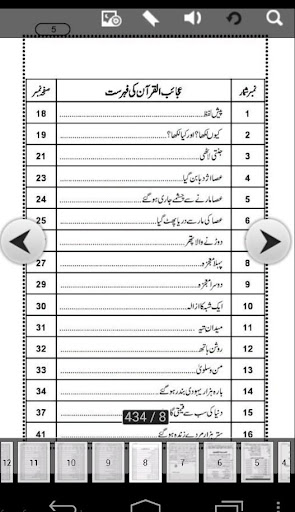 5
نمبر شمار عجائب القرآن کی فہرست صفحہ نمبر
1 پیش لفظ 18
2 کیوں لکھا؟ اور کیا لکھا؟ 19
3 جنتی لاٹھی 21
4 عصا اژدہا بن گیا 23
5 عصا مارنے سے چشمے جاری ہو گئے 24
6 عصا کی مار سے دریا پھٹ گیا 25
دوڑنے والا پتھر
8 پہلا معجزہ 27
9 دوسرا معجزہ 29
10 ایک شبہ کا ازالہ 30
11 میدان تیہ 31
12 روشن ہاتھ 32
13 من و سلویٰ 33
14 بارہ ہزار یہودی بندر ہو گئے 34
15 دنیا کی سب سے قیمتی گا 37
16 ستر ہزار مردے زندہ ہو گئے 41
434 / 8
12 11 10 9 8 7 6 5 4